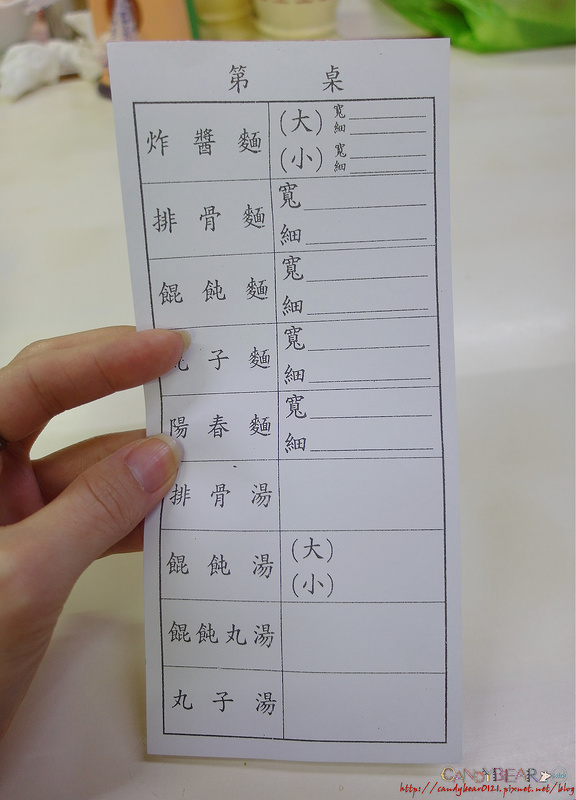 第 桌
炸醬麵 (大) 寬
細
(小) 寬
細
排骨麵 寬
細
餛飩麵 寬
細
子麵 寬
細
陽春麵 寬
細
排骨湯
餛飩湯 (大)
(小)
餛飩丸湯
丸子湯
CANDYBEAR
http://candybear0121.pixnet.net/blog